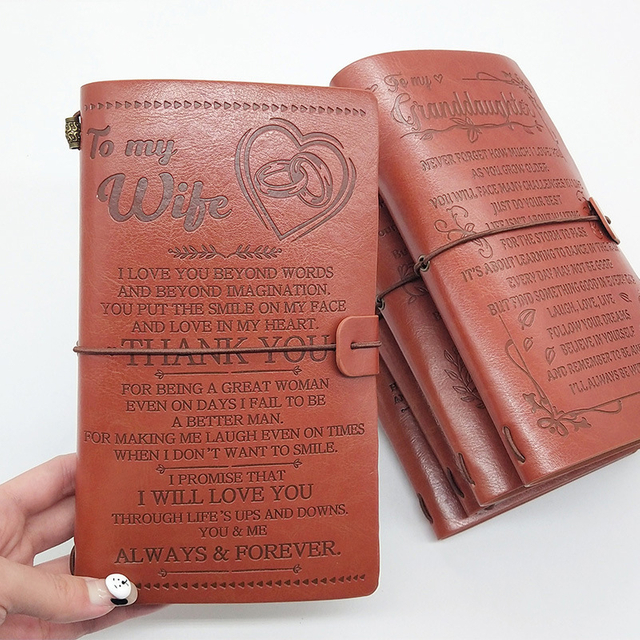 To my
Wife
I LOVE YOU BEYOND WORDS
AND BEYOND IMAGINATION.
YOU PUT THE SMILE ON MY FACE
AND LOVE IN MY HEART.
THANK YOU
FOR BEING A GREAT WOMAN
EVEN ON DAYS I FAIL TO BE
A BETTER MAN.
FOR MAKING ME LAUGH EVEN ON TIMES
WHEN I DON'T WANT TO SMILE.
I PROMISE THAT
I WILL LOVE YOU
THROUGH LIFE'S UPS AND DOWNS.
YOU & ME
ALWAYS & FOREVER.
To my
Granddaughter
NEVER FORGET HOW MUCH I LOVE YOU
AS YOU GROW OLDER
YOU WILL FACE MANY CHALLENGES IN
JUST DO YOUR BEST
LIFE ISN'T ABOUT
FOR THE STORM TO PASS
IT'S ABOUT LEARNING TO DANCE IN THE
EVERY DAY MAY NOT BE GOOD
BUT FIND SOMETHING GOOD IN EVERY
LAUGH, LOVE, LIFE
FOLLOW YOUR DREAMS
BELIEVE IN YOURSELF
AND REMEMBER TO BE
I'LL ALWAYS BE